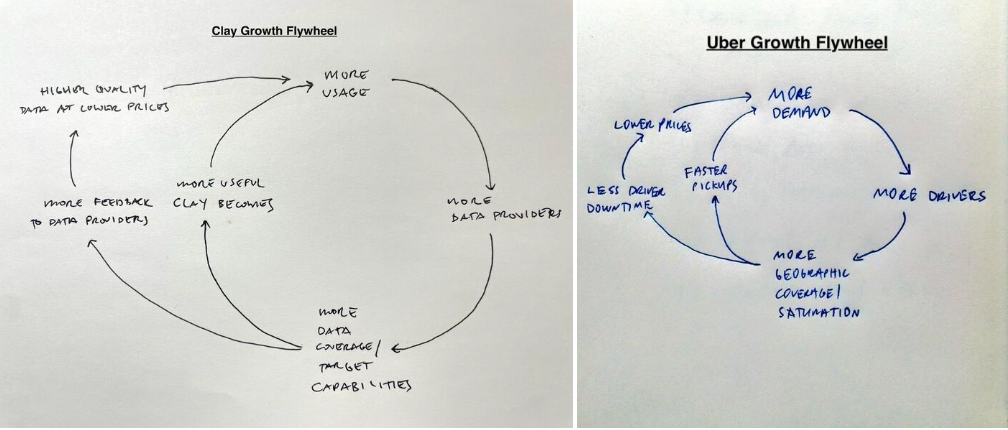 Clay Growth Flywheel
MORE
USAGE
HIGHER QUALITY
DATA AT LOWER PRICES
MORE USEFUL
CLAY BECOMES
MORE FEEDBACK
TO DATA PROVIDERS
MORE
DATA PROVIDERS
MORE
DATA
COVERAGE/
TARGET
CAPABILITIES
Uber Growth Flywheel
MORE
DEMAND
LOWER PRICES
FASTER
PICKUPS
LESS DRIVER
DOWNTIME
MORE DRIVERS
MORE
GEOGRAPHIC
COVERAGE/
SATURATION